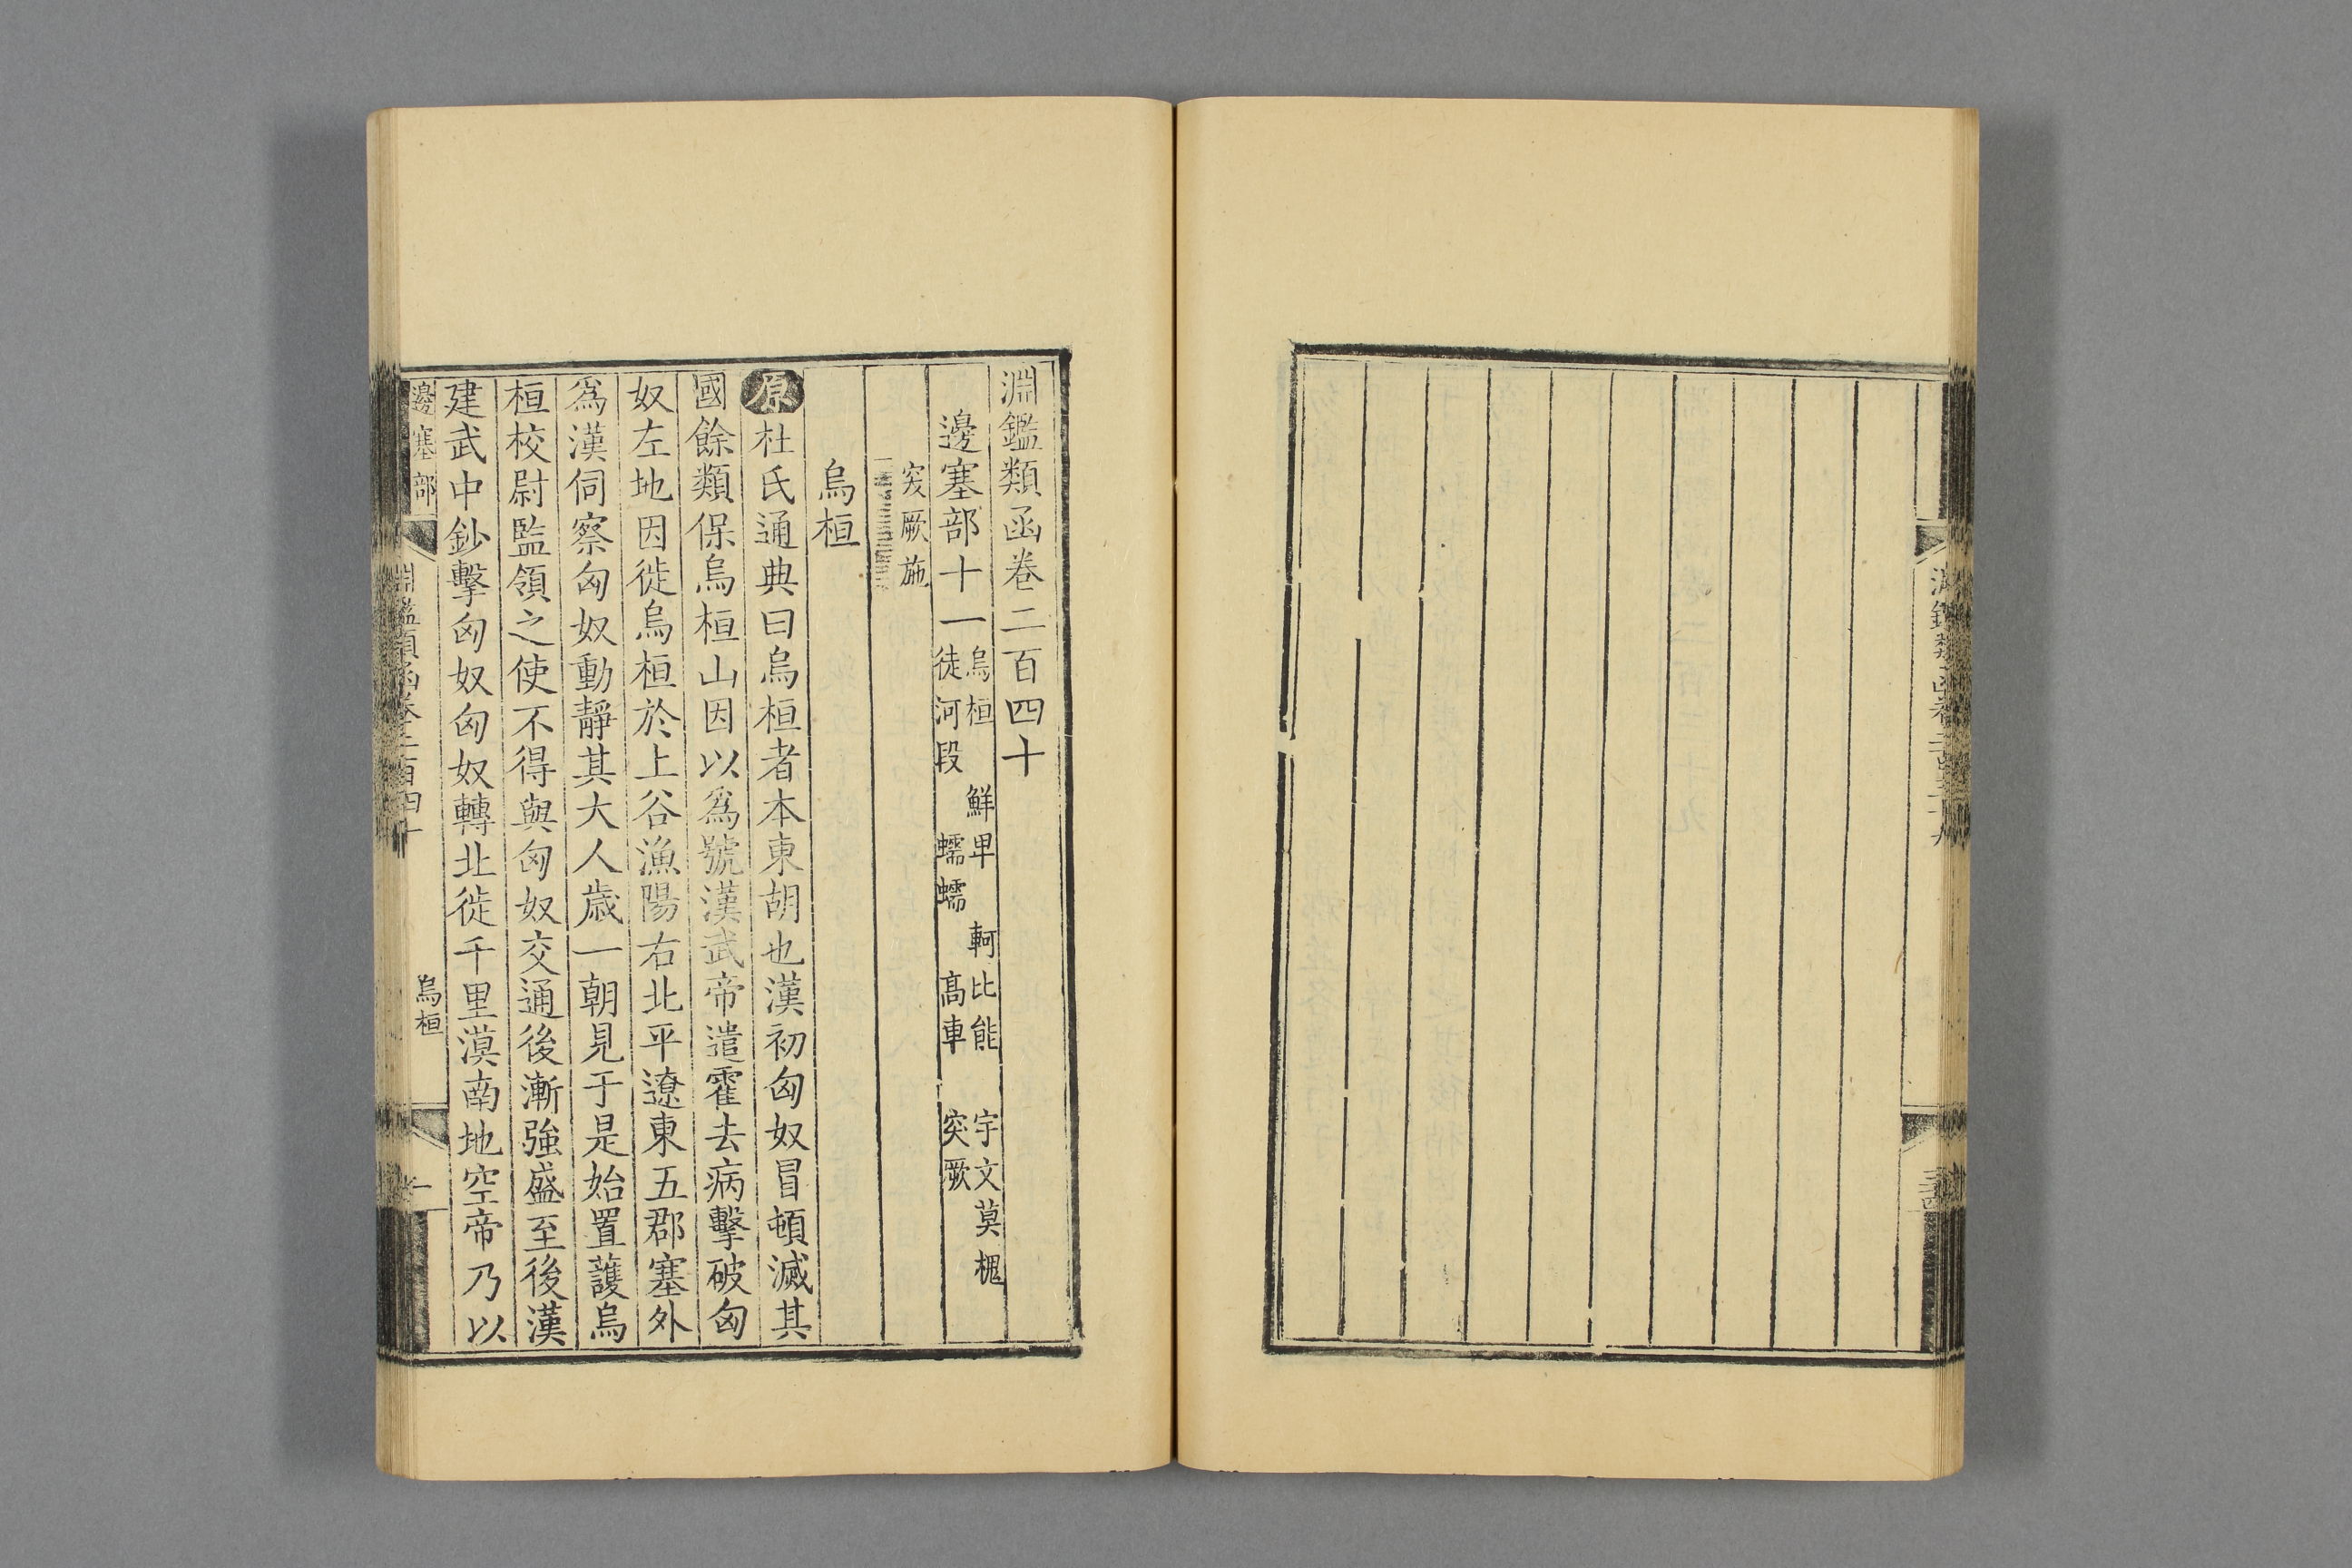 淵鑑類函卷二百四十
邊塞部十一 烏桓 鮮卑 軻比能 宇文莫槐
徒河段 蠕蠕 高車 突厥
突厥施
烏桓
原 杜氏通典曰烏桓者本東胡也漢初匈奴冒頓滅其
國餘類保烏桓山因以爲號漢武帝遣霍去病擊破匈
奴左地因徙烏桓於上谷漁陽右北平遼東五郡塞外
爲漢伺察匈奴動靜其大人歲一朝見于是始置護烏
桓校尉監領之使不得與匈奴交通後漸強盛至後漢
建武中鈔擊匈奴匈奴轉北徙千里漠南地空帝乃以
邊塞部
淵鑑類函卷二百四十
烏桓
一